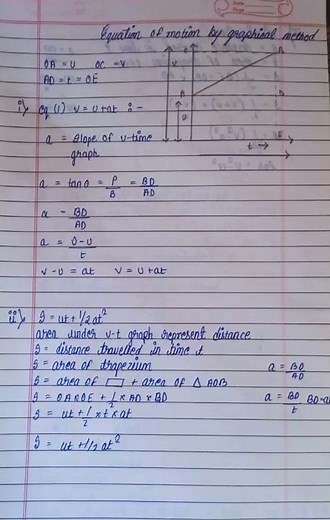 Equation of motion by graphical method
OA = U   OC = V
AD = t = OE
i) eq (1) v = u+at :-
a = slope of v-time
graph
a = tan θ = P/B = BD/AD
a = BD/AD
a = V-U/t
v - u = at   v = u+at
t →
ii) S = ut + 1/2 at²
area under v-t graph represent distance
S = distance travelled in time t
S = area of trapezium   a = BD/AD
S = area of ▭ + area of △ ADB
S = OA×OE + 1/2 × AD × BD   a = BD/t
S = ut + 1/2 × t × at
S = ut + 1/2 at²